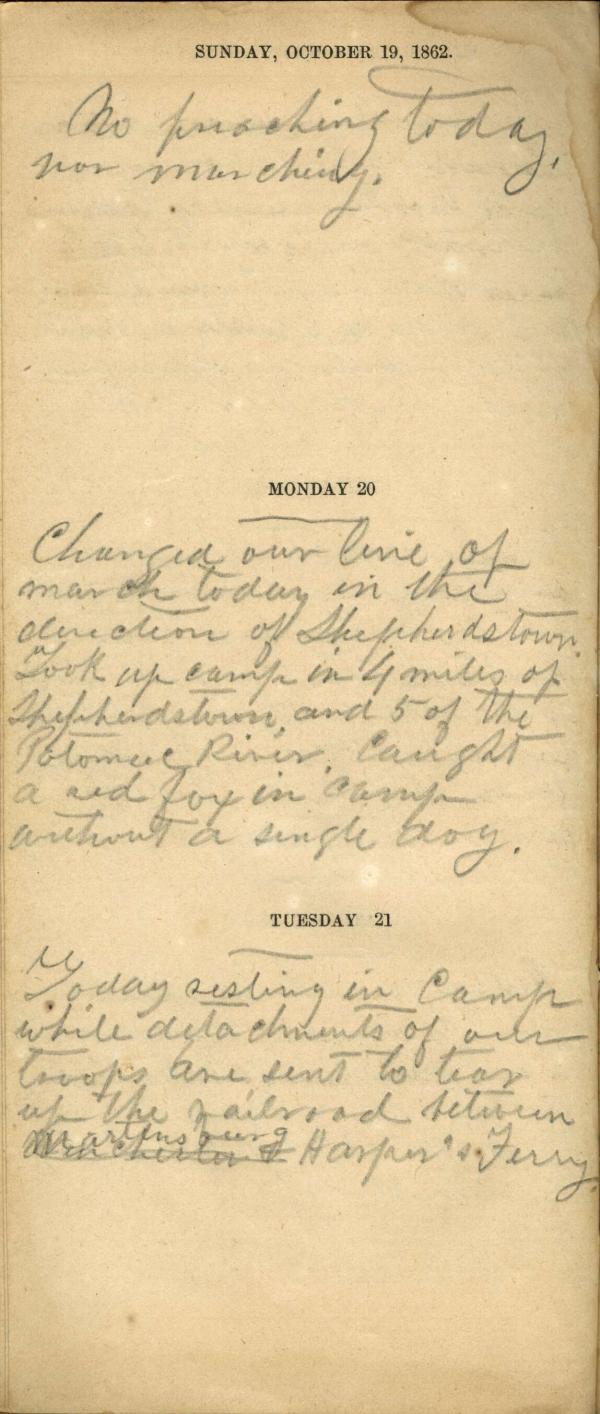 SUNDAY, OCTOBER 19, 1862.
No preaching today,
nor marching.
MONDAY 20
Changed our line of
march today in the
direction of Shepherdstown.
Took up camp in 4 miles of
Shepherdstown, and 5 of the
Potomac River. Caught
a red fox in camp
without a single dog.
TUESDAY 21
Today resting in Camp
while detachments of our
troops are sent to tear
up the railroad between
Martinsburg
Winchester & Harper's Ferry